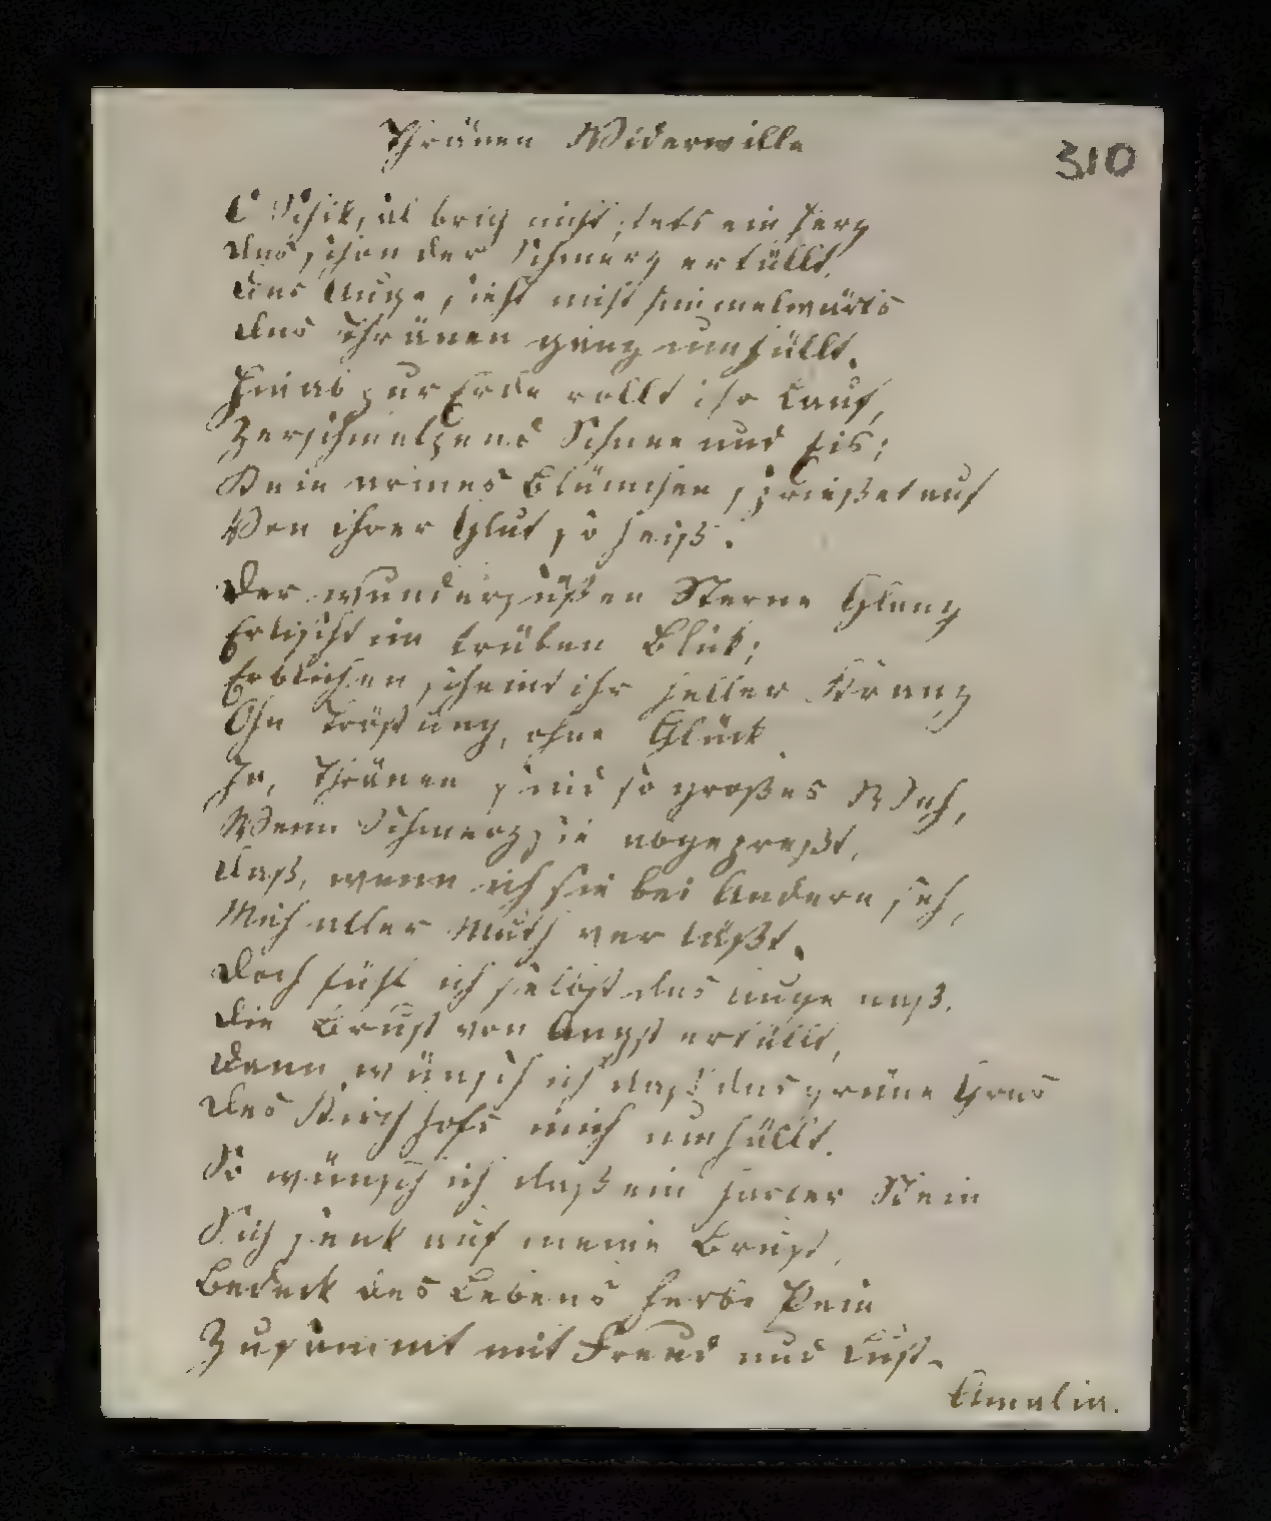 Thränen Widerwille
310
O Schik, al brich nicht stets ein Herz
das schon der Schmerz erfüllt.
das Auge sieht nicht himmelwärts
das Thränen ganz umhüllt.
Hinab zur Erde rollt ihr Lauf,
Zerschmelzend Schnee und Eis;
Kein armes Blümchen sprießet auf
Von ihrer Glut so heiß.
Der wundersüßen Sterne Glanz
Erlischt im trüben Blik;
Erblichen scheint ihr heller Kranz
Ohn Tröstung, ohne Glück.
Ja, Thränen sind so großes Weh,
Wenn Schmerz sie abgepreßt,
daß, wenn ich sie bei Andern seh,
Mich aller Muth verläßt.
doch fühl ich selbst das Auge naß,
die Brust von Angst erfüllt,
dann wünsch ich daß das grüne Gras
des Kirchhofs mich umhüllt.
So wünsch ich daß ein harter Stein
Sich senk auf meine Brust,
Bedeck des Lebens herbe Pein
Zusammt mit Freud und Lust.
Amalia.